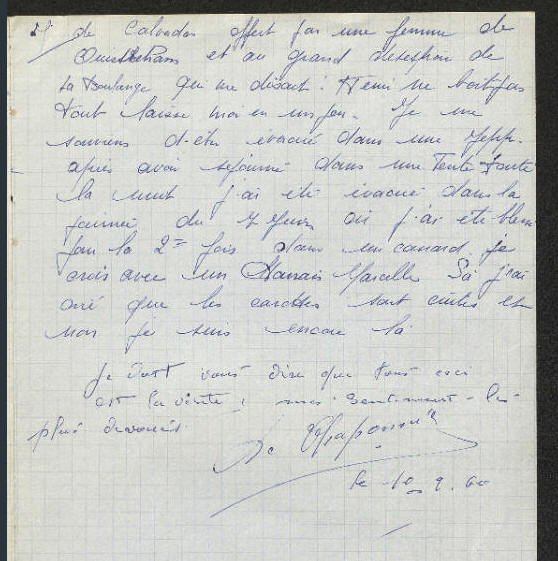 de Calvados offert par une femme de
Ouistreham et au grand desespoir de
La Boulange qui me disait: Henri ne boit pas
tout laisse moi en un peu. Je me
souviens d'etre evacué dans une Jeep.
apres avoir sejourné dans une Tente toute
la nuit j'ai été evacué dans la
journée du 7 Juin où j'ai été blessé
pour la 2e fois dans un canard je
crois avec un Marcelle Sà j'ai
crié que les carottes sont cuites et
non je suis encore là
Je doit vous dire que tous ceci
est la vérité, mes sentiment les
plus devoués.
le 10.2.60